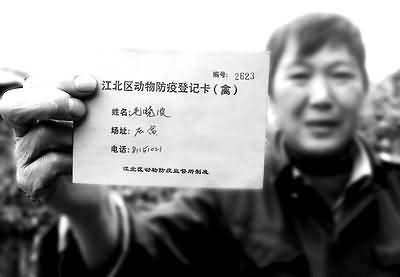 编号: 2623
江北区动物防疫登记卡(禽)
姓名:毛晓波
场址:
电话:
江北区动物防疫监督所制发